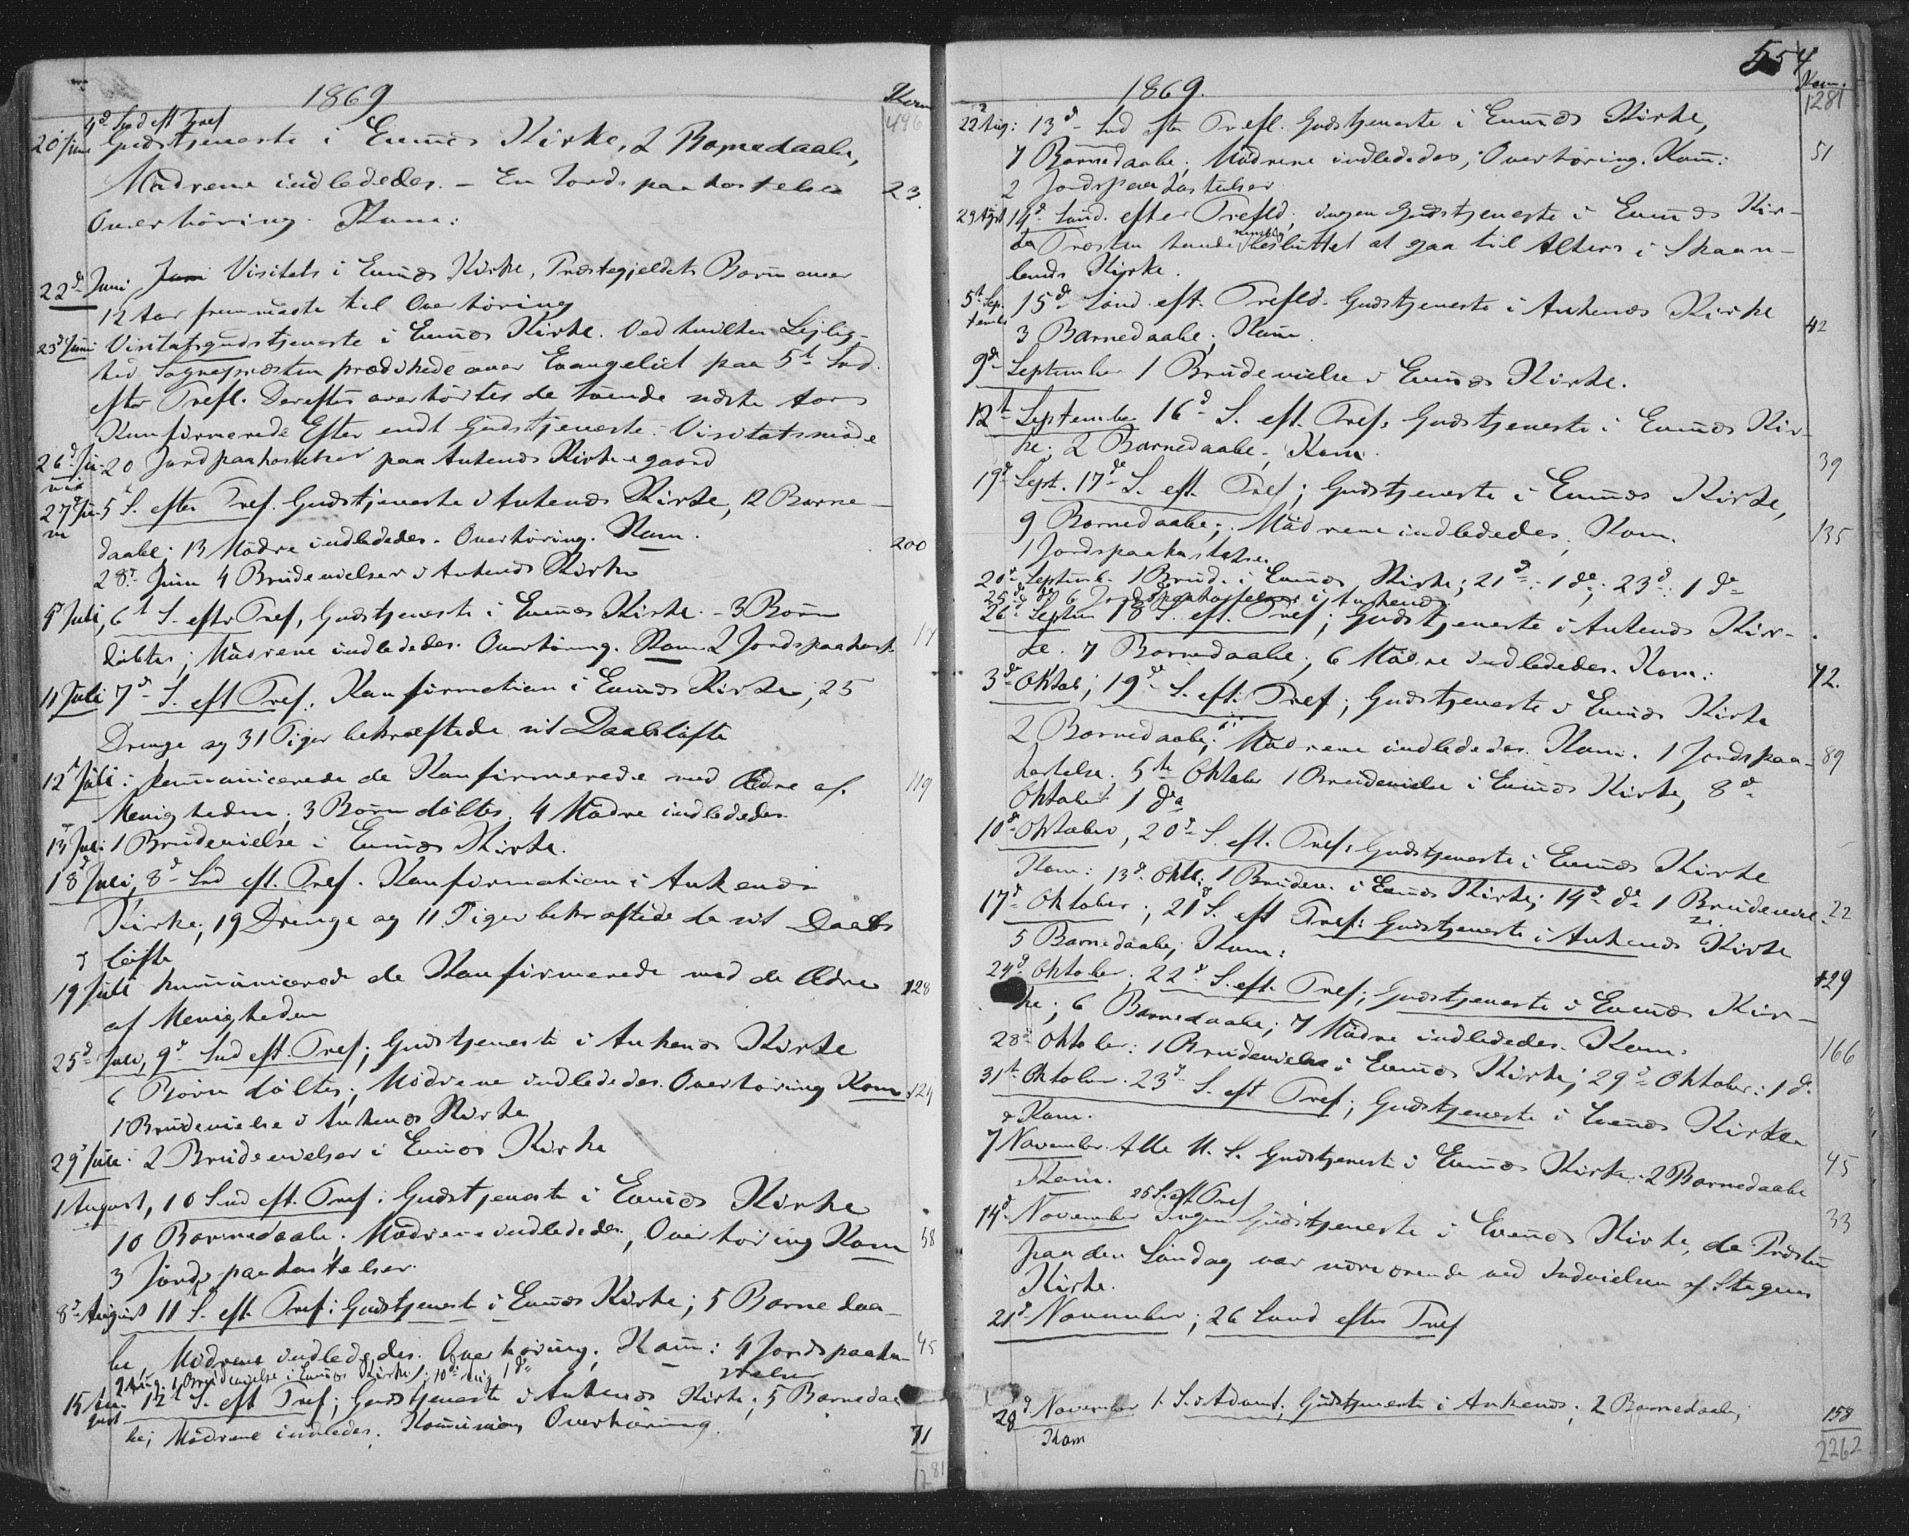 1869
Kom
4d Snd eft Tref
496
20 Juni Gudstjeneste i Evenes Kirke, 2 Barnedaabe,
Mødrene indlededes. – En Jordspaakastelse 23.
Overhøring. Kom:
22d Juni Visitats i Evenes Kirke, Præstegjeldets Børn over
12 Aar fremmødte til Overhøring
23d Juni Visitatsgudstjeneste i Evenes Kirke. Ved hvilken Leilig-
hed Sognepræsten prædikede over Evangeliet paa 5t Snd.
efter Tref. Derefter overhørtes de tvende sidste Aars
Konfirmerede Efter endt Gudstjeneste. Visitatsmøde
26d Ju-
ni 20 Jordpaakastelser paa Ankenes Kirkegaard
27d Ju-
ni 5 S. efter Tref. Gudstjeneste i Ankenes Kirke, 12 Barne-
daabe; 13 Mødre indlededes. Overhøring. Kom. 200
28d Juni 4 Brudevielser i Ankenes Kirke
4d Juli, 6t S. efter Tref, Gudstjeneste i Evenes Kirke. – 3 Børn
døbtes; Mødrene indlededes. Overhøring. Kom. 2 Jordspaakast. 17
11 Juli 7d S. eft Tref. Konfirmation i Evenes Kirke; 25
Drenge og 31 Piger bekræftede sit Daabsløfte
12d Juli: kommunicerede de Konfirmerede med Ældre af 119
Menigheden; 3 Børn døbtes; 4 Mødre indlededes
13 Juli 1 Brudevielse i Evenes Kirke.
18d Juli, 8d Snd eft. Tref. Konfirmation i Ankenes
Kirke; 19 Drenge og 11 Piger bekræftede de sit Daabs
løfte
19 Juli kommunicerede de Konfirmerede med de Ældre 128
af Menigheden
25d Juli, 9d Snd eft. Tref; Gudstjeneste i Ankenes Kirke
6 Børn døbtes; Mødrene indlededes. Overhøring Kom 124
1 Brudevielse i Ankenes Kirke
29d Juli: 2 Brudevielser i Evenes Kirke
1 August, 10 Snd eft. Tref: Gudstjeneste i Evenes Kirke
10 Barnedaabe. Mødrene indlededes, Overhøring Kom 58
3 Jordspaakastelser.
8d August 11 S. eft Tref: Gudstjeneste i Evenes Kirke; 5 Barnedaa-
be, Mødrene indlededes. Overhøring. Kom: 4 Jordspaaka- 45
stelser
9 Aug. 1 Brudevielse i Evenes Kirke; 10d Aug 1 do
15 Au-
gust 12t S. eft Tref; Gudstjeneste i Ankenes Kirke; 5 Barnedaa-
be; Mødrene indledes. Kommunion Overhøring. 71
1281
554
1869.
Kom.
1281
22 Aug: 13d Snd efter Trefl. Gudstjeneste i Evenes Kirke,
7 Barnedaabe; Mødrene indlededes; Overhøring. Kom: 51
2 Jordspaakastelser
29 Aug. 14d Sønd. efter Trefld; ingen Gudstjeneste i Evenes Kir-
ke Præsten havde nemlig besluttet at gaa til Alters i Skaan-
lands Kirke.
5t Sep-
tember 15d Sønd. eft. Trefld. Gudstjeneste i Ankenes Kirke
3 Barnedaabe; Kom. 42
9d September 1 Brudevielse i Evenes Kirke.
12t September 16d S. eft. Tref; Gudstjeneste i Evenes Kir-
ke; 2 Barnedaabe; Kom. 39
19d Sept. 17de S. eft. Tref; Gudstjeneste i Evenes Kirke,
9 Barnedaabe; Mødrene indlededes; Kom. 135
1 Jordspaakastelse
20d Septemb. 1 Brud. i Evenes Kirke; 21d: 1 do; 23d: 1 do
25d do 6 Jordspaakastelser i Ankenes
26d Septem 18 S. eft. Tref; Gudstjeneste i Ankenes Kir-
ke. 7 Barnedaabe; 6 Mødre indlededes. Kom: 72.
3d Oktob; 19de S. eft. Tref; Gudstjeneste i Evenes Kirke
2 Barnedaabe; Mødrene indlededes. Kom. 1 Jordspaa- 89
kastelse. 5te Oktober 1 Brudevielse i Evenes Kirke, 8d
Oktober 1 do
10d Oktober, 20d S. eft. Tref; Gudstjeneste i Evenes Kirke
Kom: 13d Oktb; 1 Brudev. i Evenes Kirke; 14d do 1 Brudeviel-
se 22
17d Oktober; 21d S. eft Tref: Gudstjeneste i Ankenes Kirke
5 Barnedaabe; Kom: 129
24d Oktober; 22d S. eft. Tref; Gudstjeneste i Evenes Kir-
ke; 6 Barnedaabe; 7 Mødre indlededes. Kom. 166
28d Oktober: 1 Brudevielse i Evenes Kirke; 29d Oktober: 1 do
31t Oktober. 23d S. eft Tref; Gudstjeneste i Evenes Kirke
Kom.
7 November. Alle H. S. Gudstjeneste i Evenes Kirke: 2 Barnedaabe 45
Kom.
25 S. eft Tref
14d November Ingen Gudstjeneste i Evenes Kirke, da Præsten 33
paa den Søndag var nærværende ved Indvielsen af
Kirke.
21d November; 26 Sønd efter Tref
28d November 1. S. i Advent; Gudstjeneste i Ankenes; 2 Barnedaabe;
Kom 158
2262